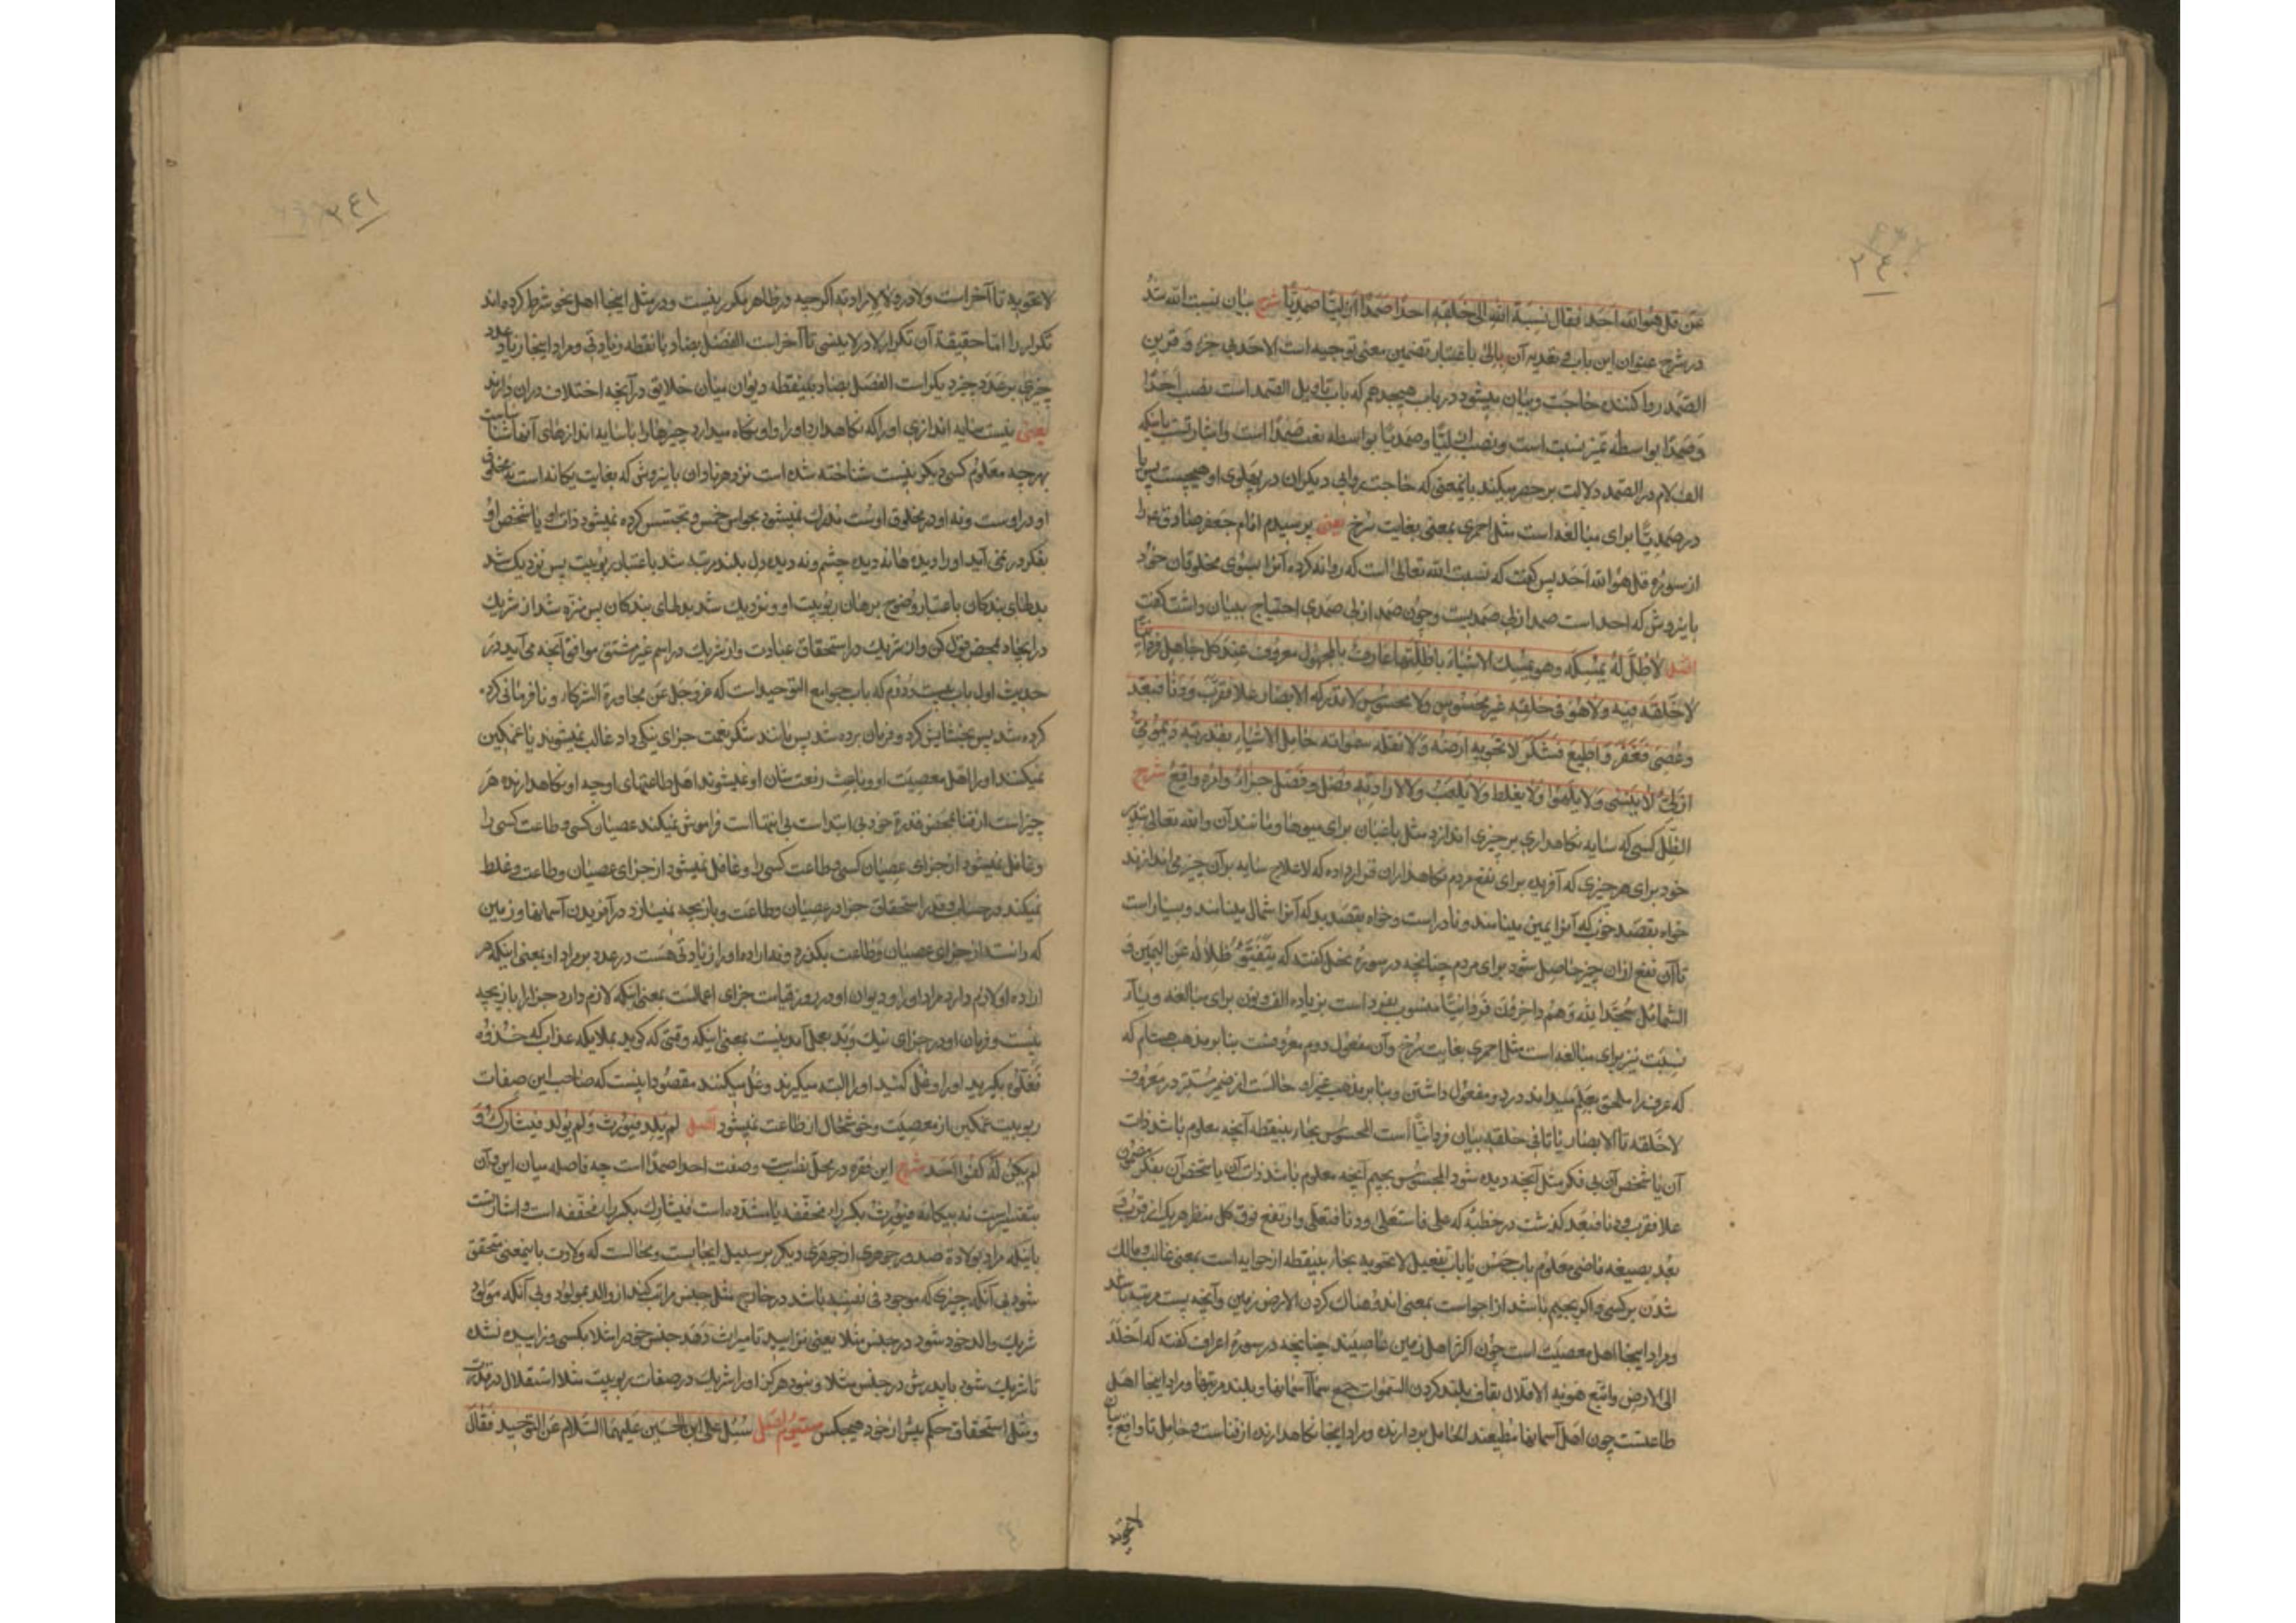 ۲۴۰
عن قل هو الله احد فقال نسبة الله الی خلقه احدا صمدا ازلیا صمدیا شرح بیان نسبت الله شد
در شرح عنوان این باب و تعدیه آن بالی باعتبار تضمین معنی توجیه است الاحد بی جزء و قرین
الصمد روا کننده حاجت و بیان میشود در باب هیجدهم که باب تاویل الصمد است نصب احدا
و صمدا بواسطه تمیز نسبت است و نصب ازلیا و صمدیا بواسطه نعت صمدا است و اشارتست باینکه
الف لام در الصمد دلالت بر حصر میکند باینمعنی که حاجت روایی دیگران در پهلوی او هیچست پس یا
در صمدیا برای مبالغه است مثل احمری بمعنی بغایت سرخ یعنی پرسیدم امام جعفر صادق ع را
از سوره قل هو الله احد پس گفت که نسبت الله تعالی است که روانه کرده آنرا بسوی مخلوقان خود
باینروش که احد است صمد ازلی صمدیست و چون صمد ازلی صمدی احتیاج ببیان داشت گفت
اصل لا ظل له یمسکه و هو یمسک الاشیاء باظلتها عارف بالمجهول معروف عند کل جاهل فردانیا
لا خلقه فیه و لا هو فی خلقه غیر محسوس و لا مجسوس لا تدرکه الابصار علا فقرب و دنا فبعد
و عصی فغفر و اطیع فشکر لا تحویه ارضه و لا تقله سمواته حامل الاشیاء بقدرته دیمومی
ازلی لا ینسی و لا یلهو و لا یغلط و لا یلعب و لا لارادته فصل و فصل جزاء و امره واقع شرح
الظل کسی که سایه نگاهداری بر چیزی اندازد مثل باغبان برای میوها و مانند آن و الله تعالی بتدبیر
خود برای هر چیزی که آفریده برای نفع مردم نگاهداران قرار داده که لاعلاج سایه بر آن چیز می اندازند
خواه بقصد خوب که آنرا یمین مینامند و نادر است و خواه بقصد بد که آنرا شمال مینامند و بسیار است
تا آن نفع ازان چیز حاصل شود برای مردم چنانچه در سوره نحل گفته که یتفیؤ ظلاله عن الیمین و
الشمائل سجدا لله و هم داخرون فردانیا منسوب بفرد است بزیاده الف و نون برای مبالغه و یاء
نسبت نیز برای مبالغه است مثل احمری بغایت سرخ و آن مفعول دوم معروفست بنا بر مذهب هشام که
که عرف را ملحق بعلم میداند در دو مفعول داشتن و بنا بر مذهب غیر او حالست از ضمیر مستتر در معروف
لا خلقه تا الابصار یا تا فی خلقه بیان فردانیا است المحسوس بحاء بینقطه آنچه معلوم باشد ذات
آن یا شخص آن بی فکر مثل آنچه دیده شود المجسوس بجیم آنچه معلوم باشد ذات آن یا شخص آن بفکر
علا فقرب و دنا فبعد گذشت در خطبه که علی فاستعلی و دنا فتعلی و ارتفع فوق کل منظر هر یک از قرب و
بعد بصیغه ماضی معلوم باب حسن یا باب تفعیل لا تحویه بحاء بینقطه از حوایه است بمعنی غالب و مالک
شدن بر کسی و اگر بجیم باشد از اجواست بمعنی اندوهناک کردن الارض زمین و آنچه پست مرتبه باشد
و مراد اینجا اهل معصیت است چون اکثر اهل زمین عاصیند چنانچه در سوره اعراف گفته که اخلد
الی الارض و اتبع هویه الاقلال بقاف بلند کردن السموات جمع سماء آسمانها و بلند مرتبها و مراد اینجا اهل
طاعتست چون اهل آسمانها مطیعند الحامل بردارنده و مراد اینجا نگاهدارنده از فناست و حامل تا واقع بیان
لا تحویه
۲۴۱
لا تحویه تا آخر است و لا در و لا لارادته اگرچه در ظاهر مکرر نیست و در مثل اینجا اهل نحو شرط کرده اند
تکرار را اما حقیقة آن تکرار لا در لا ینسی تا آخر است الفضل بضاد با نقطه زیادتی و مراد اینجا زیادتی عدد
چیزی بر عدد چیز دیگر است الفصل بصاد بینقطه دیوان میان خلایق در آنچه اختلاف دران دارند
یعنی نیست سایه اندازی او را که نگاهدارد او را و او نگاه میدارد چیزها را با سایه اندازهای آنها شناساست
بهر چه معلوم کسی دیگر نیست شناخته شده است نزد هر نادان باینروش که بغایت یگانه است نه مخلوق
او در اوست و نه او در مخلوق اوست مدرک نمیشود بحواس خمس و تجسس کرده نمیشود ذات او یا شخص او
بفکر در نمی آید او را دیده ها نه دیده چشم و نه دیده دل بلند مرتبه شد باعتبار ربوبیت پس نزدیک شد
بدلهای بندگان باعتبار وضوح برهان ربوبیت او و نزدیک شد بدلهای بندگان پس منزه شد از شریک
در ایجاد بمحض قول کن و از شریک در استحقاق عبادت و از شریک در اسم غیر مشتق موافق آنچه می آید در
حدیث اول باب بیست و دوم که باب جوامع التوحید است که عز و جل عن مجاورة الشرکاء و نافرمانی کرده
کرده شد پس بخشایش کرد و فرمان برده شد پس مانند شکر نعمت جزای نیکی داد غالب نمیشوند یا غمگین
نمیکنند او را اهل معصیت او و باعث رفعت شان او نمیشوند اهل طاعتهای او چه او نگاهدارنده هر
چیز است از فنا بمحض قدرة خود بی ابتداست بی انتها است فراموش نمیکند عصیان کسی و طاعت کسی را
و غافل نمیشود از جزای عصیان کسی و طاعت کسی را و غافل نمیشود از جزای عصیان و طاعت و غلط
نمیکند در حساب و قدر استحقاق جزا در عصیان و طاعت و بازیچه نمیسازد در آفریدن آسمانها و زمین
که دانسته از جزای عصیان و طاعت بگذرد و نه اراده او را زیادتی هست در عدد بر مراد او بمعنی اینکه هر
اراده او لازم دارد مراد او را و دیوان او در روز قیامت جزای اعمالست بمعنی اینکه لازم دارد جزا را بازیچه
نیست و فرمان او در جزای نیک و بد بعمل آمدنیست بمعنی اینکه وقتی که گوید بملایکه عذاب که خذوه
فغلوه بگیرید او را و غل کنید او را البته میگیرند و غل میکنند مقصود اینست که صاحب این صفات
ربوبیت غمگین از معصیت و خوشحال از طاعت نمیشود اصل لم یلد فیورث و لم یولد فیشارک و
لم یکن له کفوا احد شرح این فقره در محل نصب است وصفت احدا صمدا است چه فاصله میان این و آن
بتفسیر است نه بیگانه فیورث بکسر راء مخففه یا مشدده است فیشارک بکسر راء مخففه است و اشارتست
باینکه مراد بولادة صدور جوهری از جوهری دیگر بر سبیل ایجابست و محالست که ولادت باینمعنی متحقق
شود بی آنکه چیزی که موجود فی نفسه باشد در خارج مثل جنس مراتب کند از والد بمولود و بی آنکه مولود
شریک والد خود شود در جنس مثلا یعنی نزاییده تا میراث دهد جنس خود را مثلا بکسی و زاییده نشده
تا شریک شود با پدرش در جنس مثلا و نبود هرگز او را شریک در صفات ربوبیت مثلا استقلال در قدرت
و مثل استحقاق حکم پیش از خود هیچکس سیوم اصل سئل علی ابن الحسین علیهما السلام عن التوحید فقال